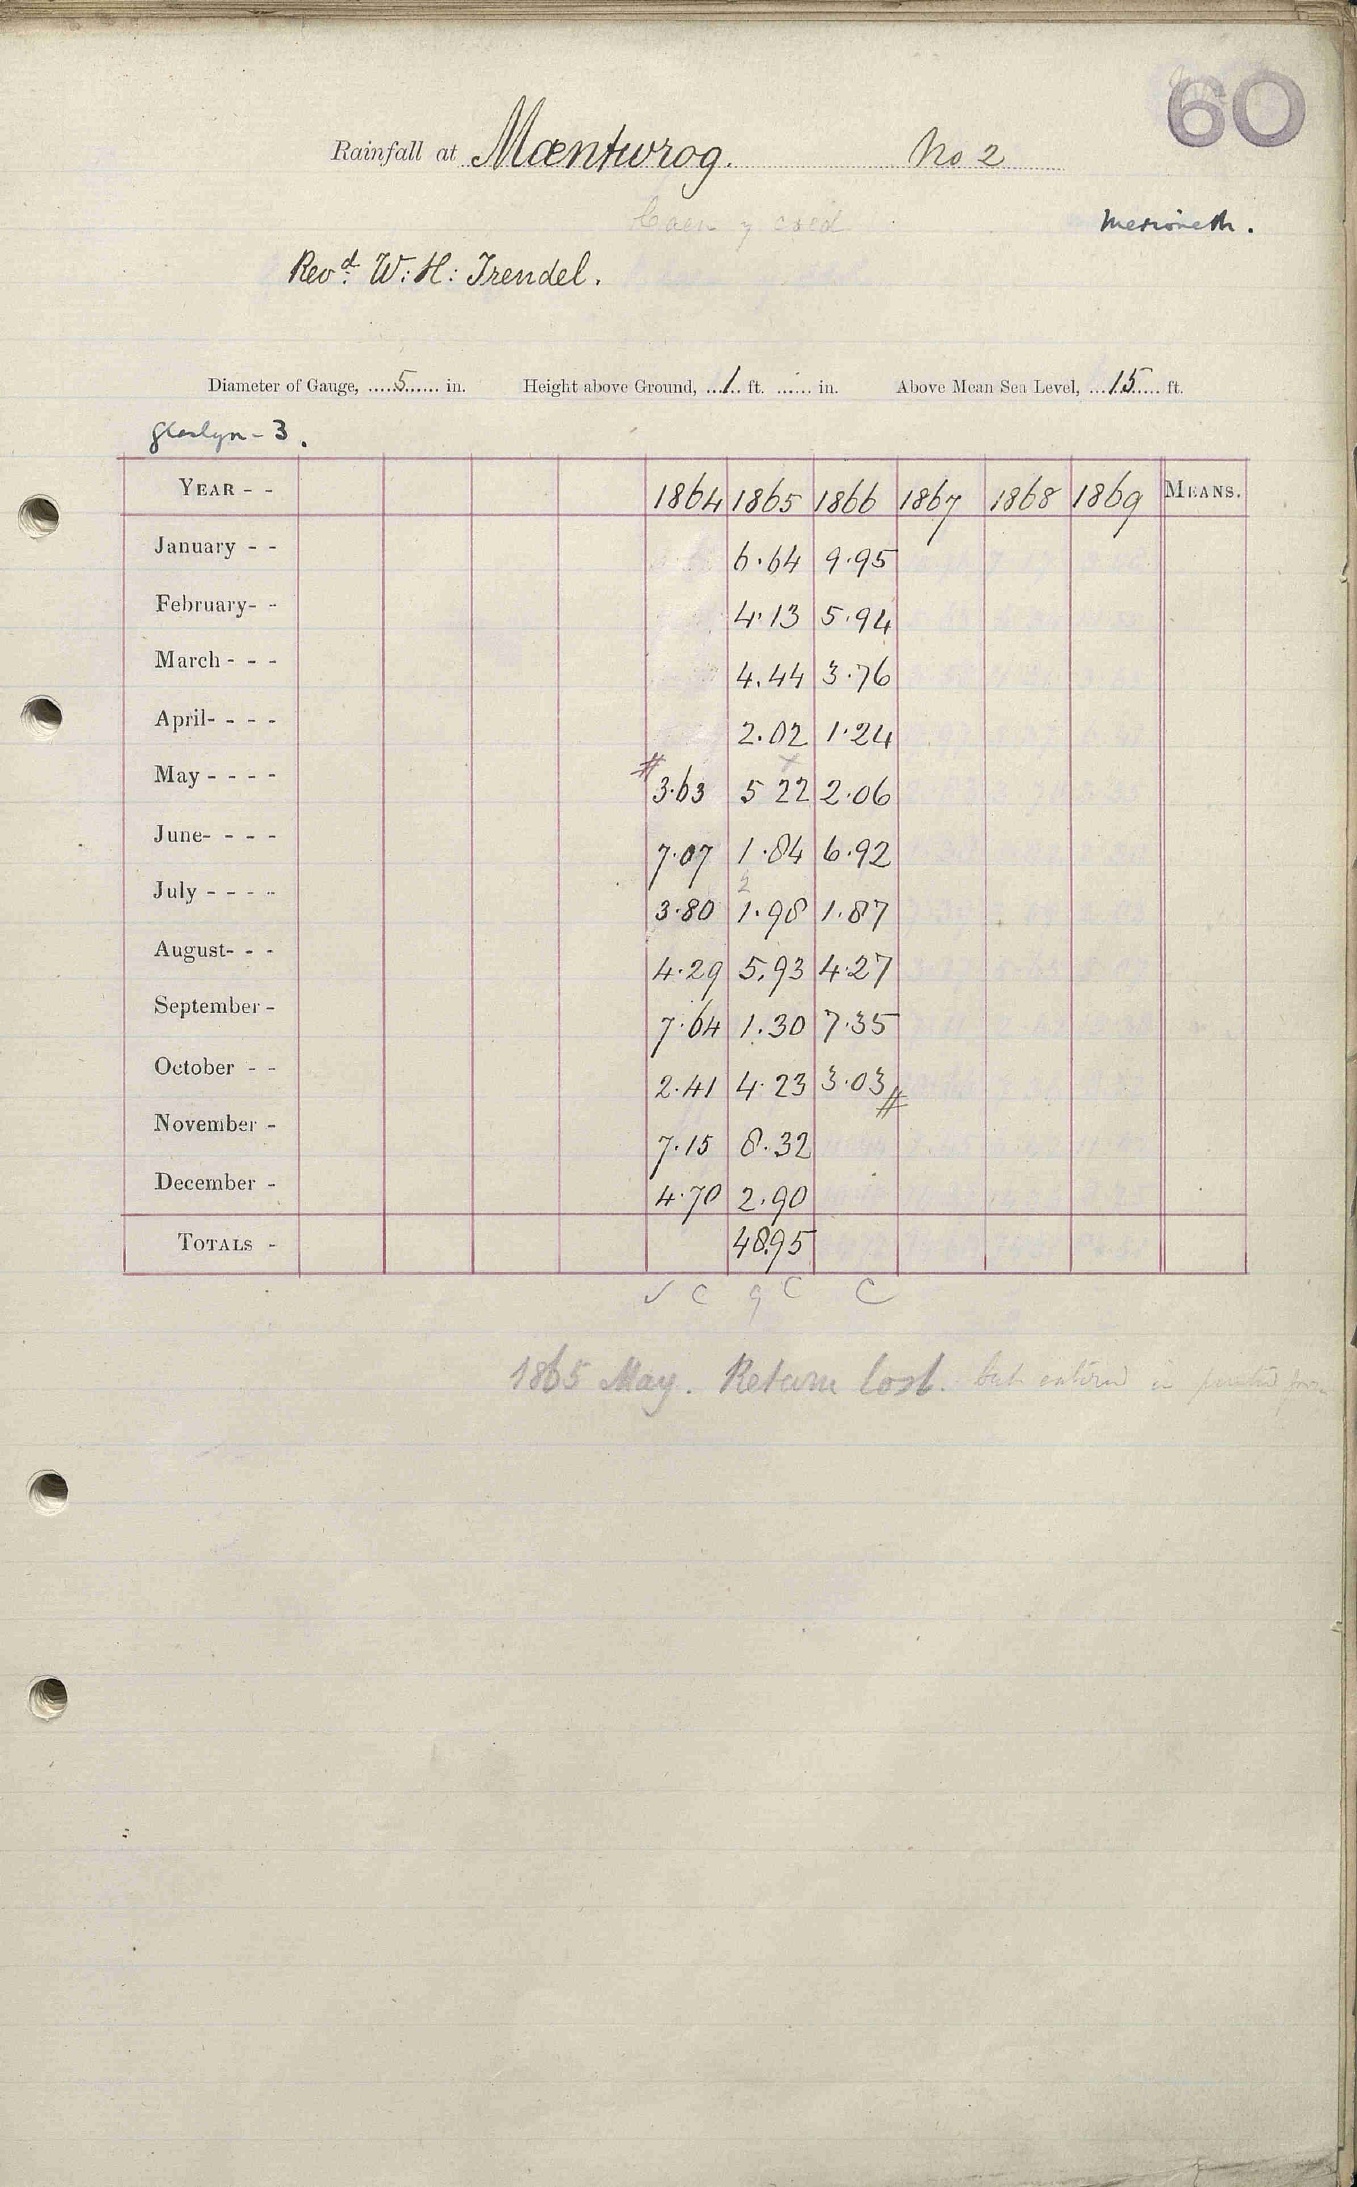 60
Rainfall at Mæntwrog. No 2
Caen y coed
Merioneth.
Revd. W: H: Trendel.
Diameter of Gauge, 5 in. Height above Ground, 1 ft. in. Above Mean Sea Level, 15 ft.
Glaslyn - 3.
YEAR - - 1864 1865 1866 1867 1868 1869 MEANS.
January - - 6.64 9.95
February- - 4.13 5.94
March - - - 4.44 3.76
April- - - - 2.02 1.24
May - - - - # 3.63 x 5 22 2.06
June- - - - 7.07 1.84 6.92
2
July - - - - 3.80 1.98 1.87
August- - - 4.29 5.93 4.27
September - 7.64 1.30 7.35
October - - 2.41 4.23 3.03 #
November - 7.15 8.32
December - 4.70 2.90
TOTALS - 48.95
✓ C 9 C C
1865 May. Return lost. but entered in printed from